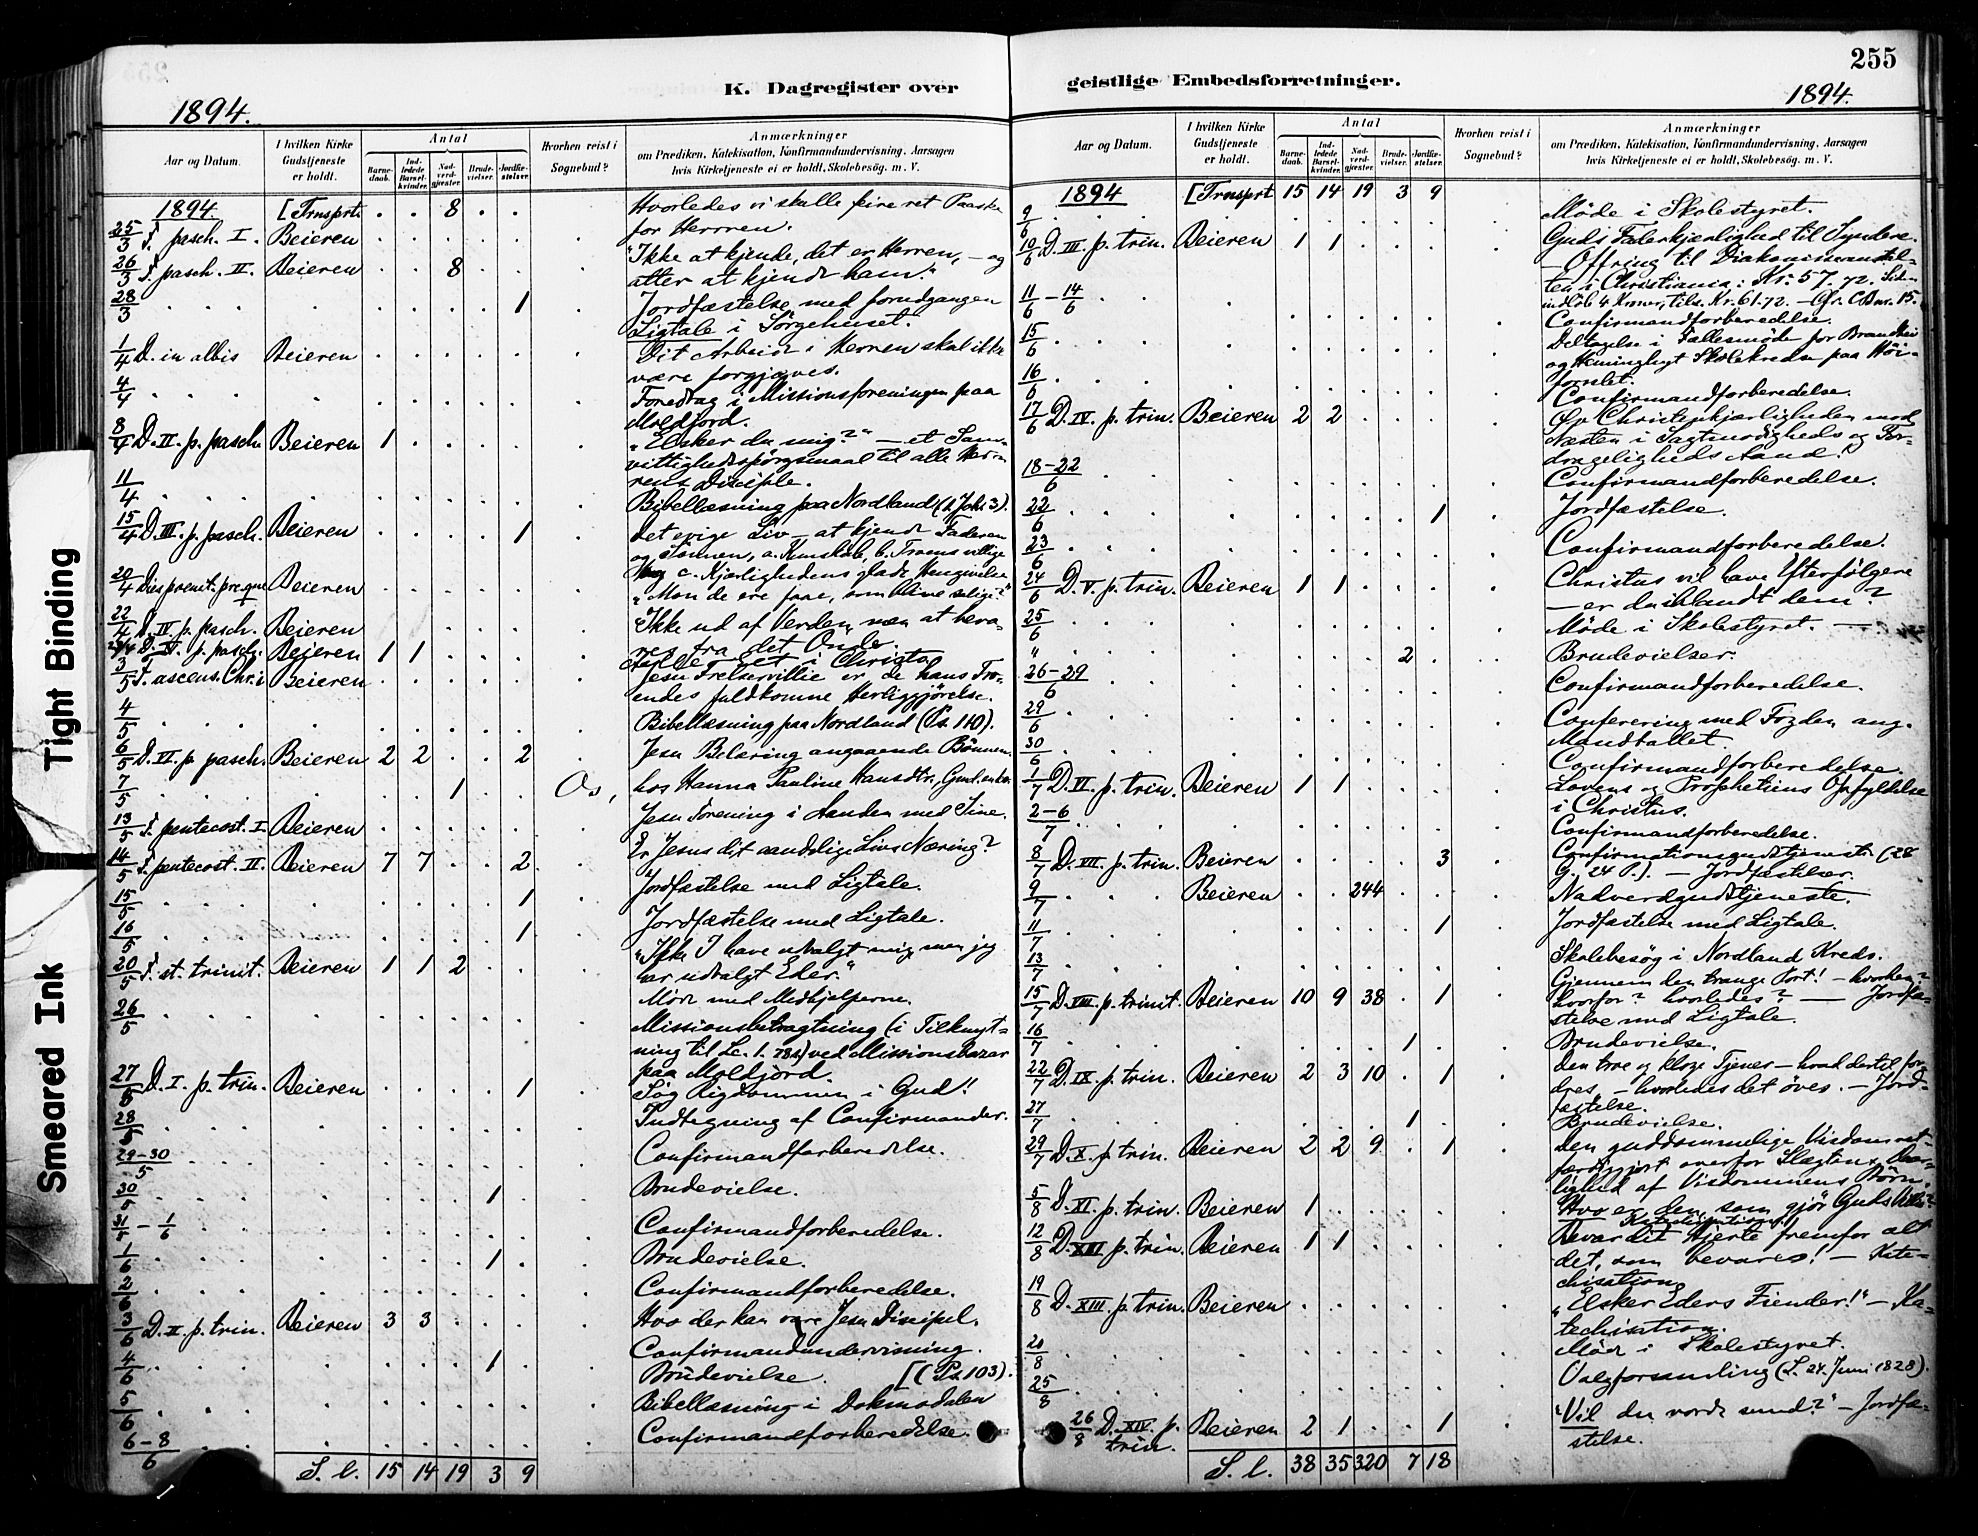 255
K. Dagregister over
1894.
Aar og Datum.
I hvilken Kirke Gudstjeneste er holdt.
Antal
Barnedaab.
Indledede Barselkvinder.
Nadverdgjester
Brudevielser.
Jordfæstelser.
Hvorhen reist i Sognebud?
Anmærkninger
om Prædiken, Katekisation, Konfirmandundervisning, Aarsagen
hvis Kirketjeneste ei er holdt, Skolebesøg. m. V.
1894. [Trnsprt. . . 8 . . Hvorledes vi skulle feire ret Paaske
for Herren.
25/3 F. pasch. I. Beieren
26/3 F. pasch. II. Beieren . . 8 . . "Ikke at kjende, det er Herren, – og
atter at kjende ham."
28/3 1 Jordfæstelse med forudgangen
Ligtale i Sørgehuset.
1/4 D. in albis Beieren Dit Arbeide i Herren skal ikke
være forgjæves.
4/4 Foredrag i Missionsforeningen paa
Moldjord.
8/4 D. II. p. pasch. Beieren 1 "Elsker du mig?" – et Sam-
vittighedsspørgsmaal til alle Her-
rens Disciple.
11/4 Bibellæsning paa Nordland (1. Joh. 3).
15/4 D. III. p. pasch. Beieren 1 det evige Liv – at kjende Faderen
og Sønnen, a. Kundskab, b. Troens villige
c. Kjærlighedens glade Hengivelse
20/4 Dies poenit. preqve Beieren "Mon de ere faae, som blive salige?"
22/4 D. IV. p. pasch. Beieren "Ikke ud af Verden, men at beva-
res fra det Onde.
29/4 D. V. p. pasch. Beieren 1 1 i Christo
3/5 F. ascens. Chri Beieren Jesu Frelservillie er de hans Tro-
endes fuldkomne Herliggjørelse.
4/5 Bibellæsning paa Nordland (Ps. 110).
6/5 D. VI. p. pasch. Beieren 2 2 . . 2 Jesu Belæring angaaende Bønnen.
7/5 1 Os, hos Hanna Pauline Hansdtr,
13/5 F. pentecost. I. Beieren Jesu Forening i Aanden med Sine.
14/5 F. pentecost. II. Beieren 7 7 . . 2 Er Jesus dit aandelige Livs Næring?
15/5 1 Jordfæstelse med Ligtale.
16/5 1 Jordfæstelse med Ligtale.
20/5 F. st. trinit. Beieren 1 1 2 "Ikke I have udvalgt mig, men jeg
har udvalgt Eder."
26/5 Møde med Medhjelperne.
Missionsbetragtning (i Tilknyt-
ning til Lc. 1. 78s) ved Missionsbazar
paa Moldjord.
27/5 D. I. p. trin. Beieren 1 Søg Rigdommen i Gud!
28/5 Indtegning af Confirmander.
29–30/5 Confirmandforberedelse.
30/5 1 Brudevielse.
31/5 – 1/6 Confirmandforberedelse.
1/6 1 Brudevielse.
2/6 Confirmandforberedelse.
3/6 D. II. p. trin. Beieren 3 3 Hvo der kan være Jesu Discipel.
4/6 1 Confirmandundervisning.
Brudevielse. [(Ps. 103).
5/6 Bibellæsning i Dokmodalen
6–8/6 Confirmandforberedelse.
S. l. 15 14 19 3 9
geistlige Embedsforretninger.
1894.
Aar og Datum.
I hvilken Kirke Gudstjeneste er holdt.
Antal
Barnedaab.
Indledede Barselkvinder.
Nadverdgjester.
Brudevielser.
Jordfæstelser.
Hvorhen reist i Sognebud?
Anmærkninger
om Prædiken, Katekisation, Konfirmandundervisning, Aarsagen
hvis Kirketjeneste ei er holdt, Skolebesøg. m. V.
1894 [Trnsprt 15 14 19 3 9
9/6 Møde i Skolestyret.
10/6 D. III. p. trin. Beieren 1 1 Guds Faderkjærlighed til Syndere.
– Offring til Diakonisseanstal-
ten i Christiania: Kr. 57.72.
indløb 4 Kroner, tils. Kr. 61.72. –
11/6 – 14/6 Confirmandforberedelse.
15/6 Deltagelse i Fællesmøde for
og Skolekredse paa Høi-
forslet.
16/6 Confirmandforberedelse.
17/6 D. IV. p. trin. Beieren 2 2 Øv Christenkjærligheden mod
Næsten i Sagtmodigheds og For-
drageligheds Aand!
18–22/6 Confirmandforberedelse.
22/6 1 Jordfæstelse.
23/6 Confirmandforberedelse.
24/6 D. V. p. trin. Beieren 1 1 Christus vil have Efterfølgere
– er du iblandt dem?
25/6 Møde i Skolestyret. –
" 2 Brudevielser.
26–29/6 Confirmandforberedelse.
29/6 Conferering med Fogden ang.
Mandtallet.
30/6 Confirmandforberedelse.
1/7 D. VI. p. trin. Beieren 1 1 Lovens og Prophetiens Opfyldelse
i Christus.
2–6/7 Confirmandforberedelse.
8/7 D. VII. p. trin. Beieren 3 Confirmationsgudstjeneste (28
G., 24 P.). – Jordfæstelser.
9/7 Beieren 244 Nadverdgudstjeneste.
11/7 1 Jordfæstelse med Ligtale.
13/7 Skolebesøg i Nordland Kreds.
15/7 D. VIII. p. trinit. Beieren 10 9 38 . 1 Gjennem den trange Port! – hvorhen?
hvorfor? hvorledes? – Jordfæ-
stelse med Ligtale.
16/7 1 Brudevielse.
22/7 D. IX. p. trin. Beieren 2 3 10 . 1 Den troe og kloge Tjener – hvad dertil for-
dres, – hvorledes det øves. – Jord-
fæstelse.
27/7 1 Brudevielse.
29/7 D. X. p. trin. Beieren 2 2 9 . 1 Den guddommelige Visdom ret-
færdiggjort overfor Slægtens
lighed af Visdommens Børn.
5/8 D. XI. p. trin. Beieren 1 Hvo er den, som gjør Guds Villie?
Katechisation.
12/8 D. XII p. trin. Beieren 1 1 Bevar dit Hjerte fremfor alt
det, som bevares! – Kate-
chisation.
19/8 D. XIII. p. trin. Beieren "Elsker Eders Fiender!" – Ka-
techisation.
20/8 Møde i Skolestyret.
25/8 Valgforsamling (L. 24. Juni 1828).
26/8 D. XIV. p. trin. Beieren 2 1 . . 1 "Vil du vorde sund?" – Jordfæ-
stelse.
S. l. 38 35 320 7 18
Tight Binding
Smeared Ink